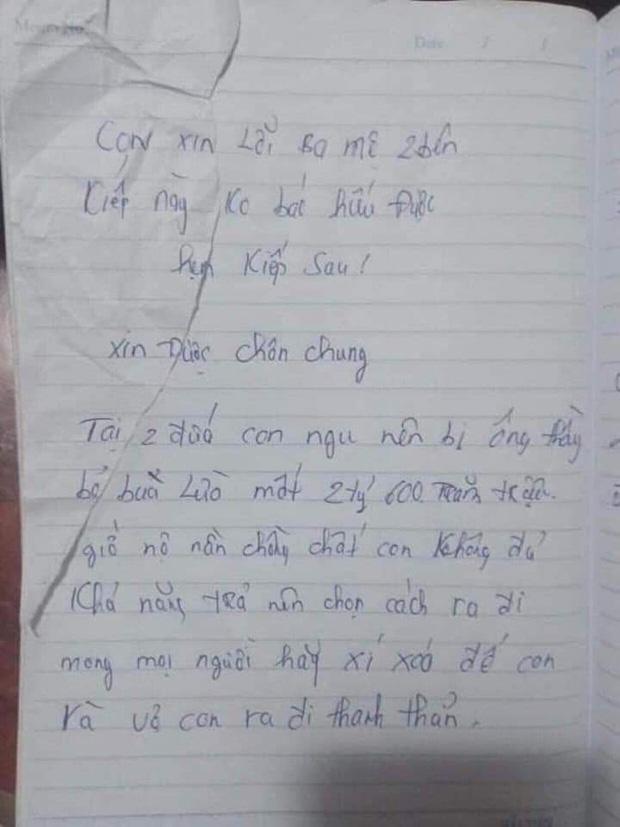 Con xin Lỗi Ba mẹ 2 bên
Kiếp này Ko báo hiếu được
hẹn Kiếp Sau!
xin Được chôn chung
Tại 2 đứa con ngu nên bị ông thầy
bỏ buà Lừa mất 2 tỷ 600 Trăm triệu.
giờ nợ nần chồng chất con Không đủ
Khả năng trả nên chọn cách ra đi
mong mọi người hãy xí xoá để con
và vợ con ra đi thanh thản.